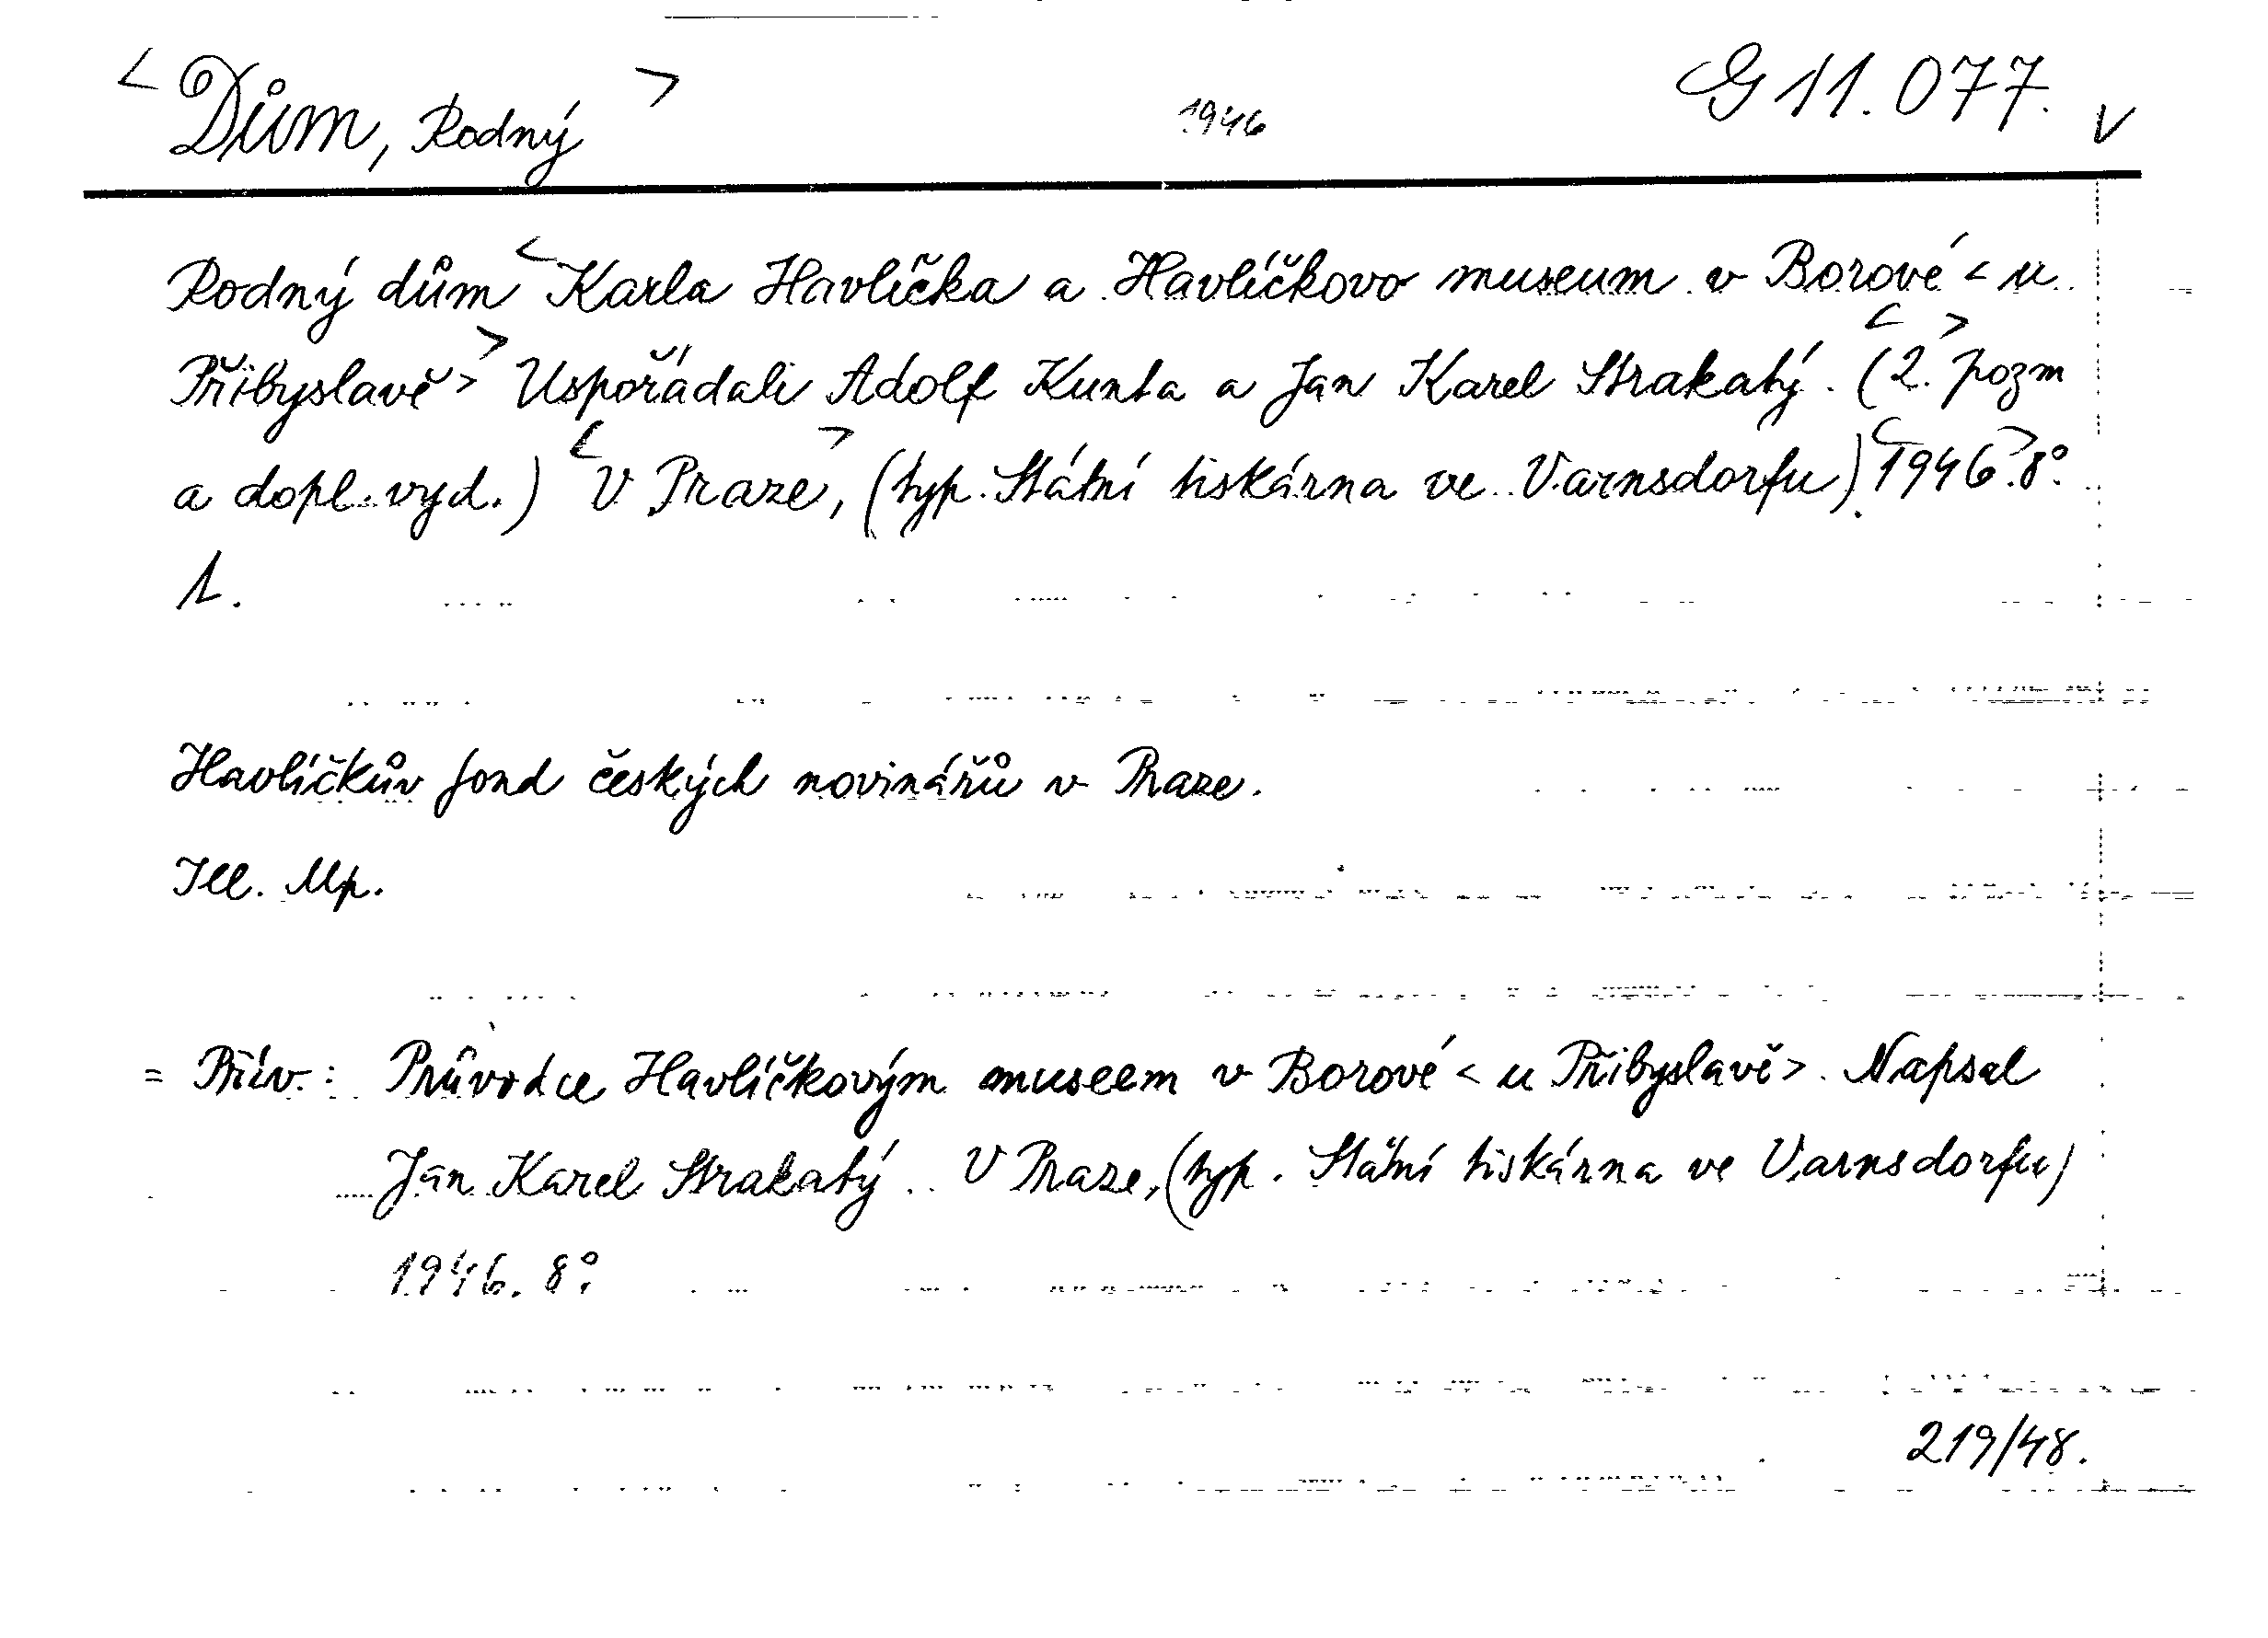 < Dům, Rodný > 1946 G 11.077. V
Rodný dům < Karla Havlíčka a Havlíčkovo museum v Borové < u
Přibyslavě > > Uspořádali Adolf Kunta a Jan Karel Strakatý. (< 2. > pozm
a dopl. vyd.) < V Praze >, (typ. Státní tiskárna ve Varnsdorfu). < 1946 >. 8°.
1.
Havlíčkův fond českých novinářů v Praze.
Ill. Mp.
= Přív.: Průvodce Havlíčkovým museem v Borové < u Přibyslavě >. Napsal
Jan Karel Strakatý. V Praze, (typ. Státní tiskárna ve Varnsdorfu)
1946. 8°.
219/48.